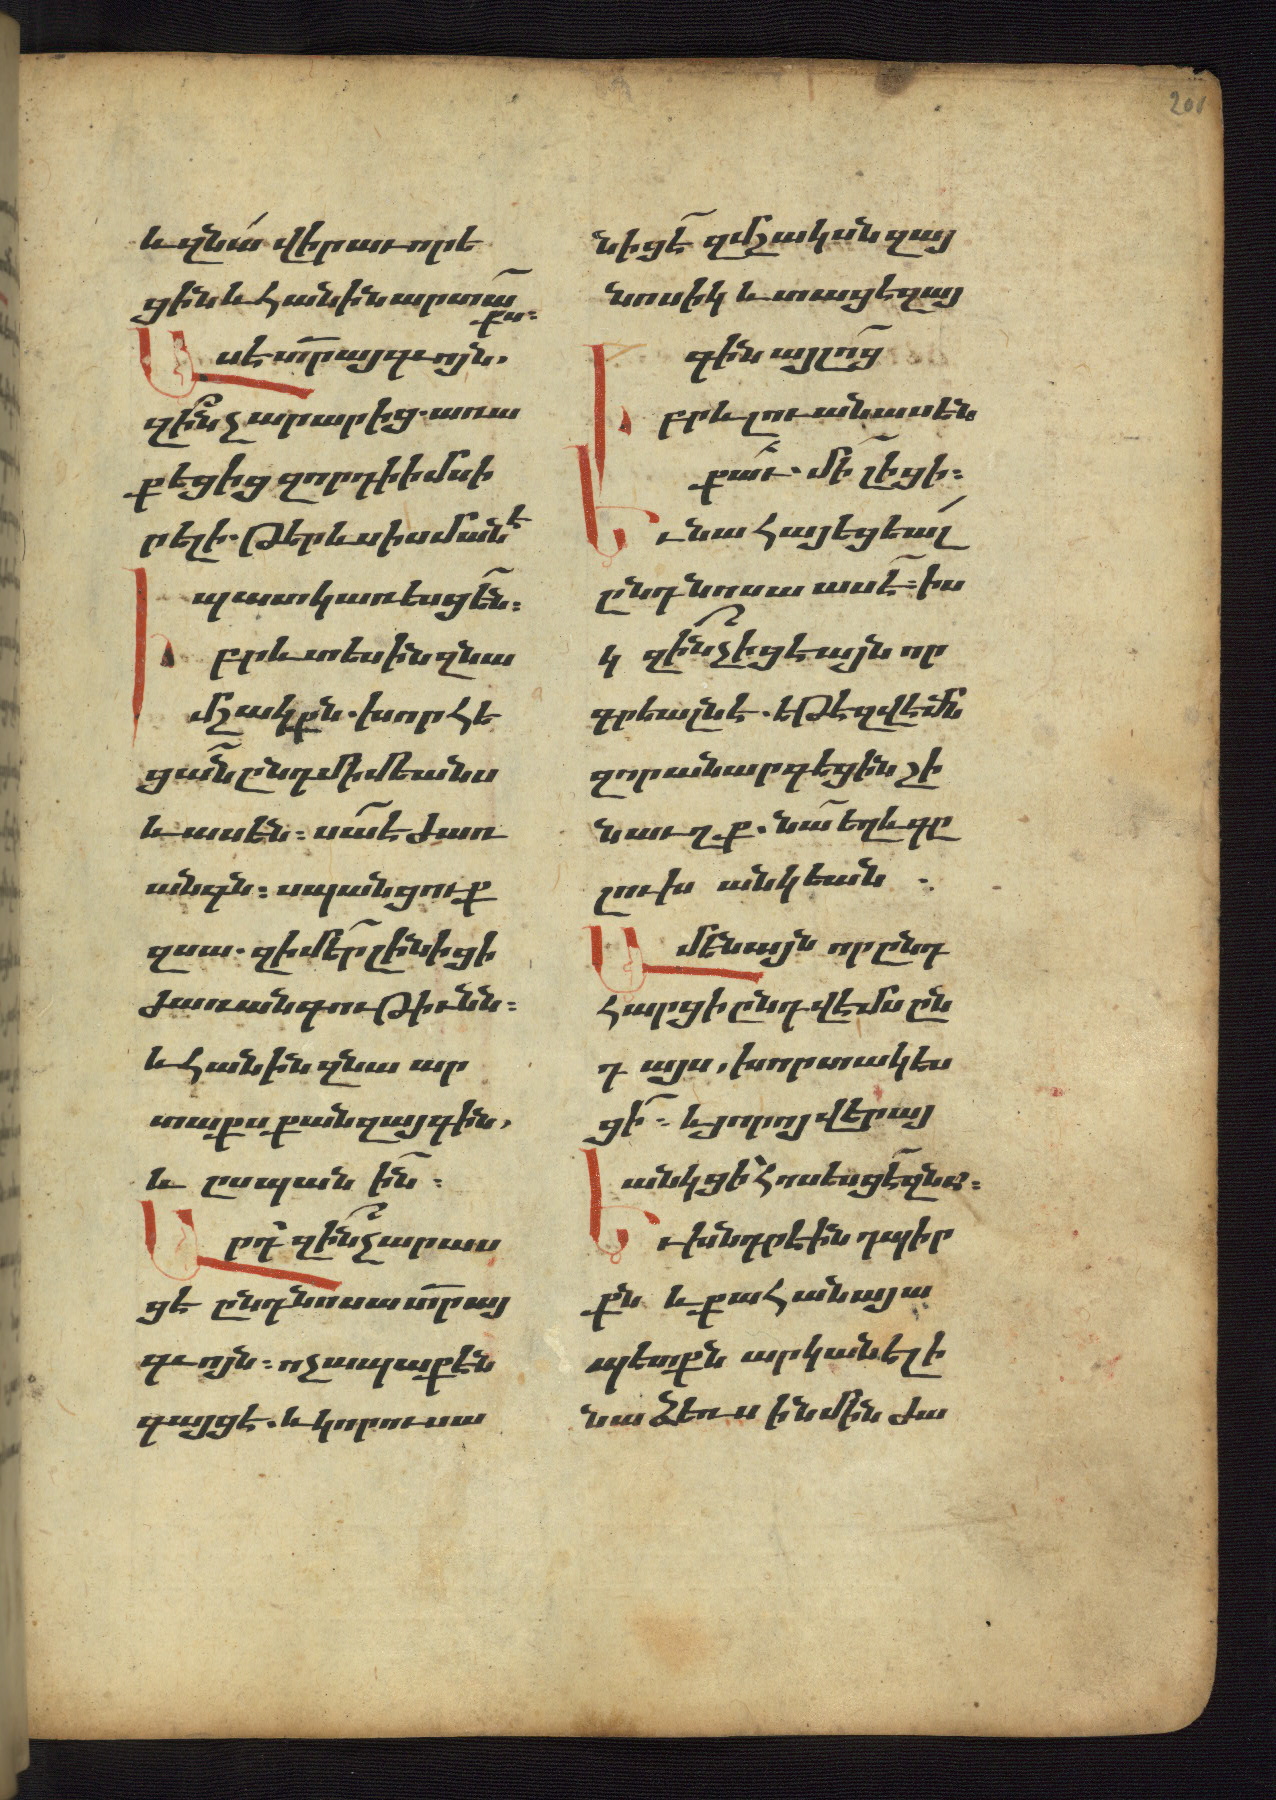 201
և զնա՛ վիրաւորե
ցին և հանին արտա
քս։
Ասէ տ̅րայգւոյն,
զի̅նչ արարից. առա
քեցից զորդի իմ սի
րելի. թերևս ի սմանէ
պատկառեսցե̅ն։
Իբրև տեսին զնա
մշակքն. խորհե
ցա̅ն ընդ միմեանս
և ասեն։ սա̅ է ժառ
անգն։ սպանցուք
զսա. զի մե̅ր լինիցի
ժառանգութիւնն։
և հանին զնա ար
տաքս քան զայգին,
և ըսպան ի̅ն։
Արդ՝ զի̅նչ արաս
ցէ ընդ նոսա տ̅րայ
գւոյն։ ոչ ապաքէն
գայցէ. և կորուսա
նիցէ̅ զմշակսն զայ
նոսիկ և տացէ զայ
գին այլո̅ց
Իբրև լուան ասեն
քա՛ւ. մի̅ լիցի։
Եւ նա հայեցեա՛լ
ընդ նոսա ասէ̅։ իս
կ զի̅նչ իցէ այն որ
գրեալն է. եթէ զվէմն
զոր անարգեցին շի
նաւղք. նա̅ եղև գը
լուխ անկեան .
Ամենայն որ ընդ
հարցի ընդ վէմս ըն
դ այս, խորտակես
ցի̅։ և յորոյ վերայ
անկցի՝ հոսեսցէ̅ զնա։
Եւ խնդրէին դպիր
քն և քահանայա
պետքն արկանել ի
նա ձեռս ի նմին ժա